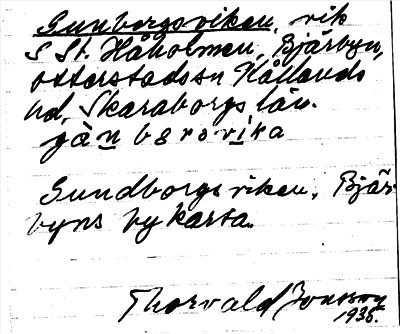 Gunborgsviken, vik
S St. Håholmen, Bjärbyn,
Otterstads sn Kållands
hd, Skaraborgs län.
gànborsvika
Gundborgsviken, Bjär
byns bykarta.
Thorvald Jonsson
1935.